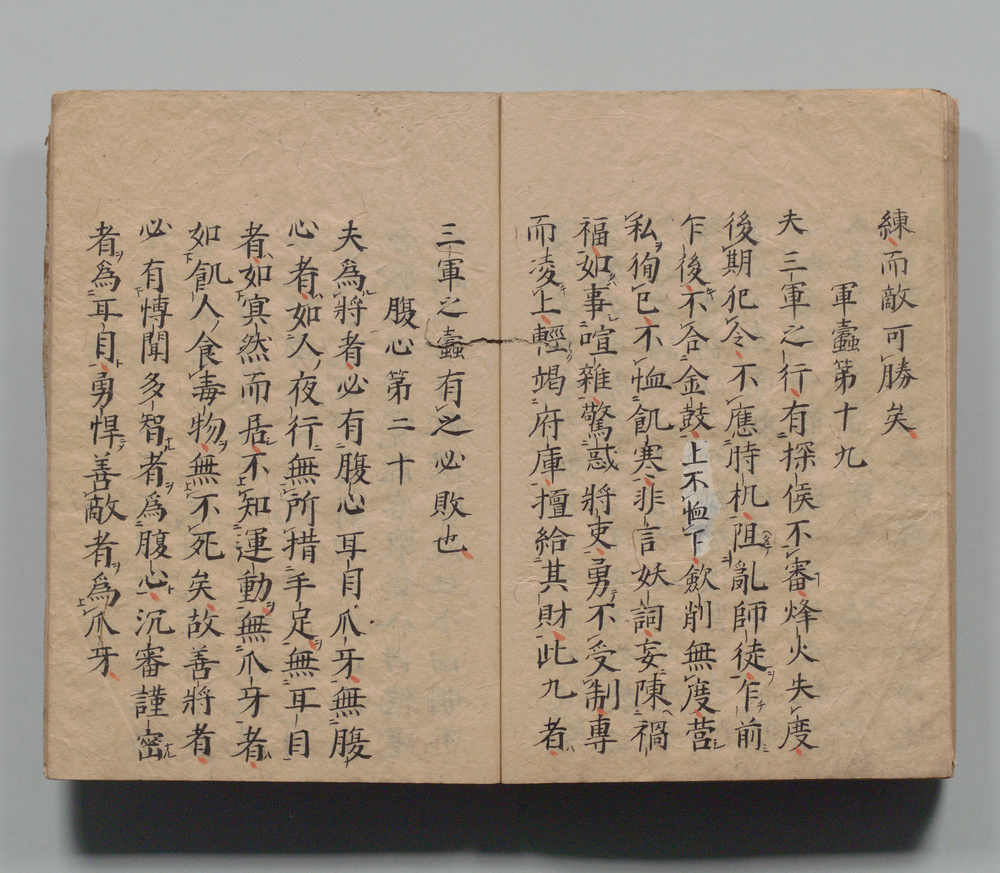 練而敵可勝矣
軍蠹第十九
夫三軍之行有探候不審烽火失度
後期犯令不應時机阻亂師徒乍前
乍後不合金鼓上不恤下歛削無度营
私徇已不恤飢寒非言妖詞妄陳禍
福如事喧雜驚惑將吏勇不受制專
而凌上輕竭府庫擅給其財此九者
三軍之蠹有之必敗也
腹心第二十
夫爲將者必有腹心耳目爪牙無腹
心者如人夜行無所措手足無耳目
者如冥然而居不知運動無爪牙者
如飢人食毒物無不死矣故善將者
必有博聞多智者爲腹心沉審謹密
者爲耳目勇悍善敵者爲爪牙